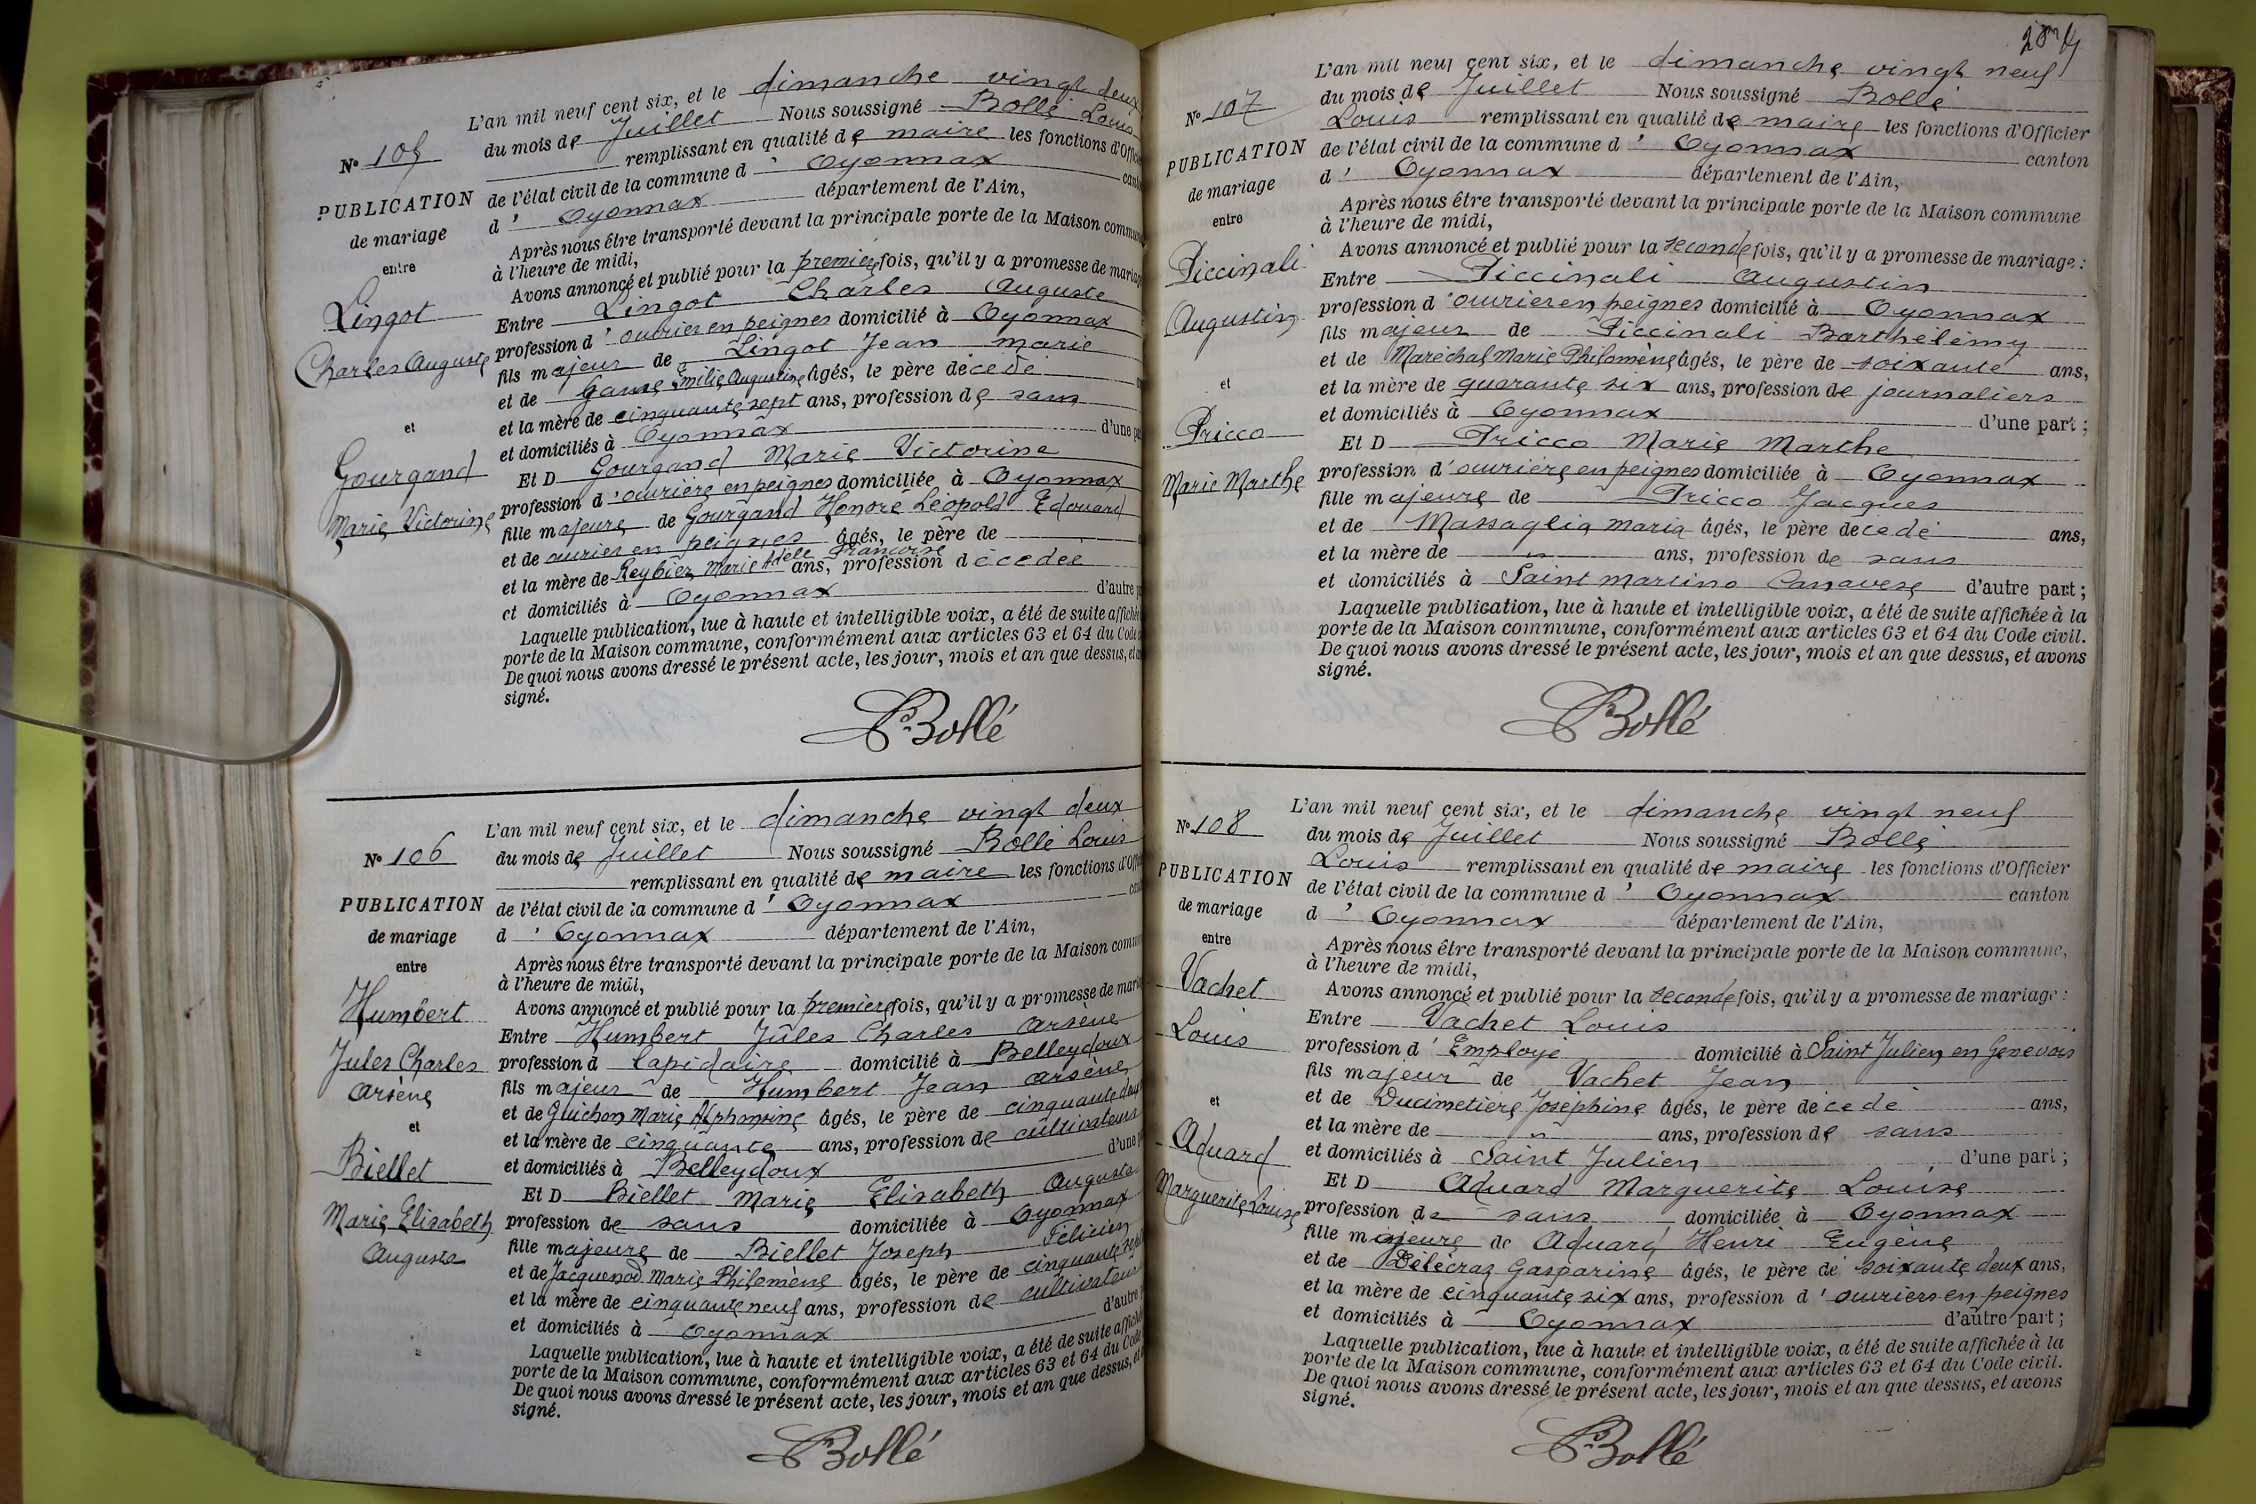 N° 105
PUBLICATION
de mariage
entre
Lingot
Charles Auguste
et
Gourgand
Marie Victorine
L'an mil neuf cent six, et le dimanche vingt deux
du mois de Juillet Nous soussigné Bollé Louis
remplissant en qualité de maire les fonctions d'Offici
de l'état civil de la commune d'Oyonnax cant
d'Oyonnax département de l'Ain,
Après nous être transporté devant la principale porte de la Maison commune
à l'heure de midi,
Avons annoncé et publié pour la première fois, qu'il y a promesse de mariage
Entre Lingot Charles Auguste
profession d'ouvrier en peignes domicilié à Oyonnax
fils majeur de Lingot Jean Marie
et de Game Emilie Augustine âgés, le père décédé
et la mère de cinquante sept ans, profession de sans
et domiciliés à Oyonnax d'une pa
Et D Gourgand Marie Victorine
profession d'ouvrière en peignes domiciliée à Oyonnax
fille majeure de Gourgand Honoré Léopold Edouard
et de ouvrier en peignes âgés, le père de
et la mère de Reybier Marie Adèle Françoise ans, profession décédée
et domiciliés à Oyonnax d'autre p
Laquelle publication, lue à haute et intelligible voix, a été de suite affichée
porte de la Maison commune, conformément aux articles 63 et 64 du Code
De quoi nous avons dressé le présent acte, les jour, mois et an que dessus, et
signé.
Bollé
N° 106
PUBLICATION
de mariage
entre
Humbert
Jules Charles
Arsène
et
Biellet
Marie Elisabeth
Augusta
L'an mil neuf cent six, et le dimanche vingt deux
du mois de Juillet Nous soussigné Bollé Louis
remplissant en qualité de maire les fonctions d'Offi
de l'état civil de la commune d'Oyonnax can
d'Oyonnax département de l'Ain,
Après nous être transporté devant la principale porte de la Maison commu
à l'heure de midi,
Avons annoncé et publié pour la première fois, qu'il y a promesse de mari
Entre Humbert Jules Charles Arsène
profession d lapidaire domicilié à Belleydoux
fils majeur de Humbert Jean Arsène
et de Guichon Marie Alphonsine âgés, le père de cinquante deux
et la mère de cinquante ans, profession de cultivateurs
et domiciliés à Belleydoux d'une p
Et D Biellet Marie Elisabeth Augusta
profession de sans domiciliée à Oyonnax
fille majeure de Biellet Joseph Félicien
et de Jacquenod Marie Philomène âgés, le père de cinquante sept
et la mère de cinquante neuf ans, profession de cultivateurs
et domiciliés à Oyonnax d'autre
Laquelle publication, lue à haute et intelligible voix, a été de suite affichée
porte de la Maison commune, conformément aux articles 63 et 64 du Code
De quoi nous avons dressé le présent acte, les jour, mois et an que dessus, et
signé.
Bollé
N° 107
PUBLICATION
de mariage
entre
Piccinali
Augustin
et
Pricco
Marie Marthe
L'an mil neuf cent six, et le dimanche vingt neuf
du mois de Juillet Nous soussigné Bollé
Louis remplissant en qualité de maire les fonctions d'Officier
de l'état civil de la commune d'Oyonnax canton
d'Oyonnax département de l'Ain,
Après nous être transporté devant la principale porte de la Maison commune
à l'heure de midi,
Avons annoncé et publié pour la seconde fois, qu'il y a promesse de mariage :
Entre Piccinali Augustin
profession d'ouvrier en peignes domicilié à Oyonnax
fils majeur de Piccinali Barthélémy
et de Maréchal Marie Philomène âgés, le père de soixante ans,
et la mère de quarante six ans, profession de journaliers
et domiciliés à Oyonnax d'une part ;
Et D Pricco Marie Marthe
profession d'ouvrière en peignes domiciliée à Oyonnax
fille majeure de Pricco Jacques
et de Massaglia Maria âgés, le père décédé ans,
et la mère de " ans, profession de sans
et domiciliés à Saint Martino Canavese d'autre part ;
Laquelle publication, lue à haute et intelligible voix, a été de suite affichée à la
porte de la Maison commune, conformément aux articles 63 et 64 du Code civil.
De quoi nous avons dressé le présent acte, les jour, mois et an que dessus, et avons
signé.
Bollé
N° 108
PUBLICATION
de mariage
entre
Vachet
Louis
et
Aduard
Marguerite Louise
L'an mil neuf cent six, et le dimanche vingt neuf
du mois de Juillet Nous soussigné Bollé
Louis remplissant en qualité de maire les fonctions d'Officier
de l'état civil de la commune d'Oyonnax canton
d'Oyonnax département de l'Ain,
Après nous être transporté devant la principale porte de la Maison commune,
à l'heure de midi,
Avons annoncé et publié pour la seconde fois, qu'il y a promesse de mariage :
Entre Vachet Louis
profession d'Employé domicilié à Saint Julien en Genevois
fils majeur de Vachet Jean
et de Ducimetière Joséphine âgés, le père décédé ans,
et la mère de " ans, profession de sans
et domiciliés à Saint Julien d'une part ;
Et D Aduard Marguerite Louise
profession de sans domiciliée à Oyonnax
fille majeure de Aduard Henri Eugène
et de Délécraz Gasparine âgés, le père de soixante deux ans,
et la mère de cinquante six ans, profession d'ouvriers en peignes
et domiciliés à Oyonnax d'autre part ;
Laquelle publication, lue à haute et intelligible voix, a été de suite affichée à la
porte de la Maison commune, conformément aux articles 63 et 64 du Code civil.
De quoi nous avons dressé le présent acte, les jour, mois et an que dessus, et avons
signé.
Bollé